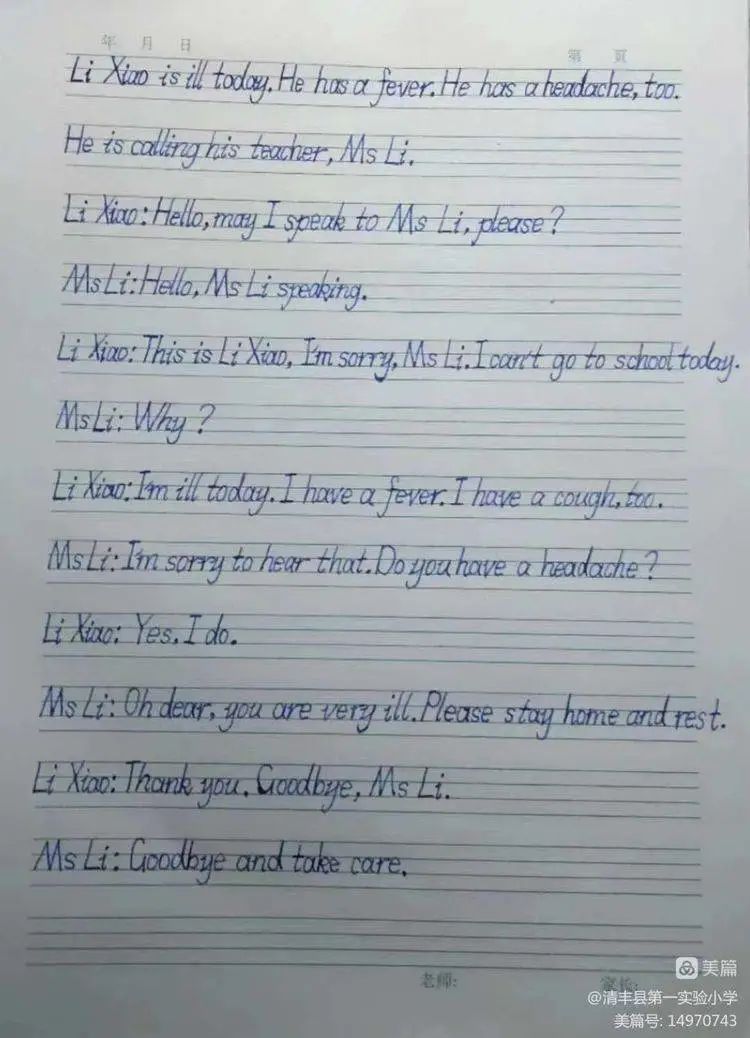 年 月 日
第 页
Li Xiao is ill today. He has a fever. He has a headache, too.
He is calling his teacher, Ms Li.
Li Xiao: Hello, may I speak to Ms Li, please?
Ms Li: Hello, Ms Li speaking.
Li Xiao: This is Li Xiao, I'm sorry, Ms Li. I can't go to school today.
Ms Li: Why?
Li Xiao: I'm ill today. I have a fever. I have a cough, too.
Ms Li: I'm sorry to hear that. Do you have a headache?
Li Xiao: Yes, I do.
Ms Li: Oh dear, you are very ill. Please stay home and rest.
Li Xiao: Thank you. Goodbye, Ms Li.
Ms Li: Goodbye and take care.
老师: 家长:
美篇
@清丰县第一实验小学
美篇号: 14970743